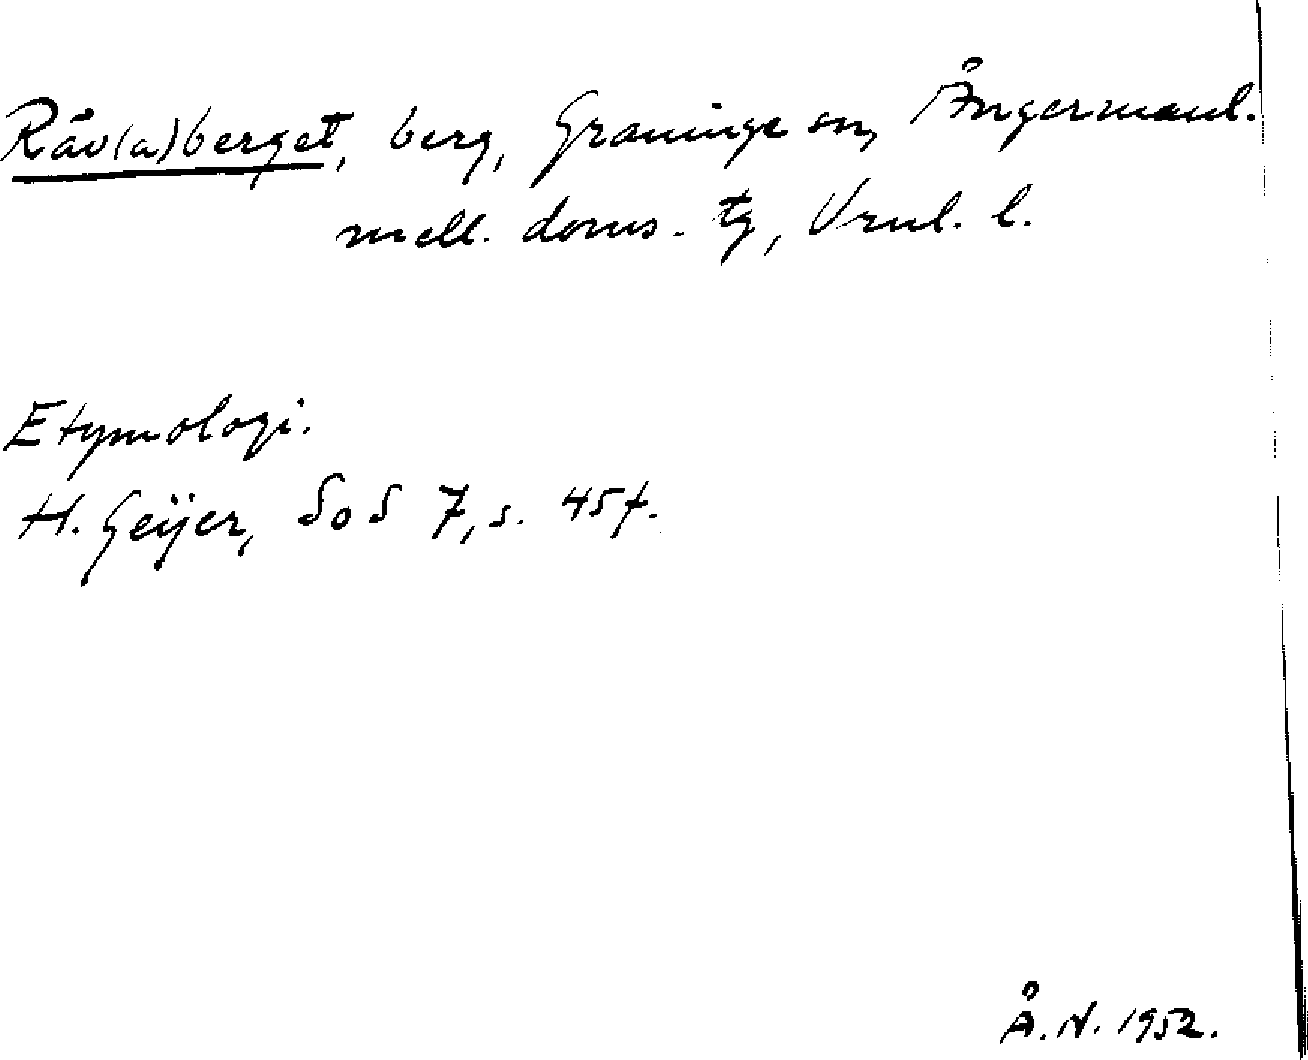 Råv(a)berget, berg, Graninge sn, Ångermanl.
mell. doms. tg, Vrnl. l.
Etymologi.
H. Geijer, SoS 7, s. 45 f.
Å. N. 1952.